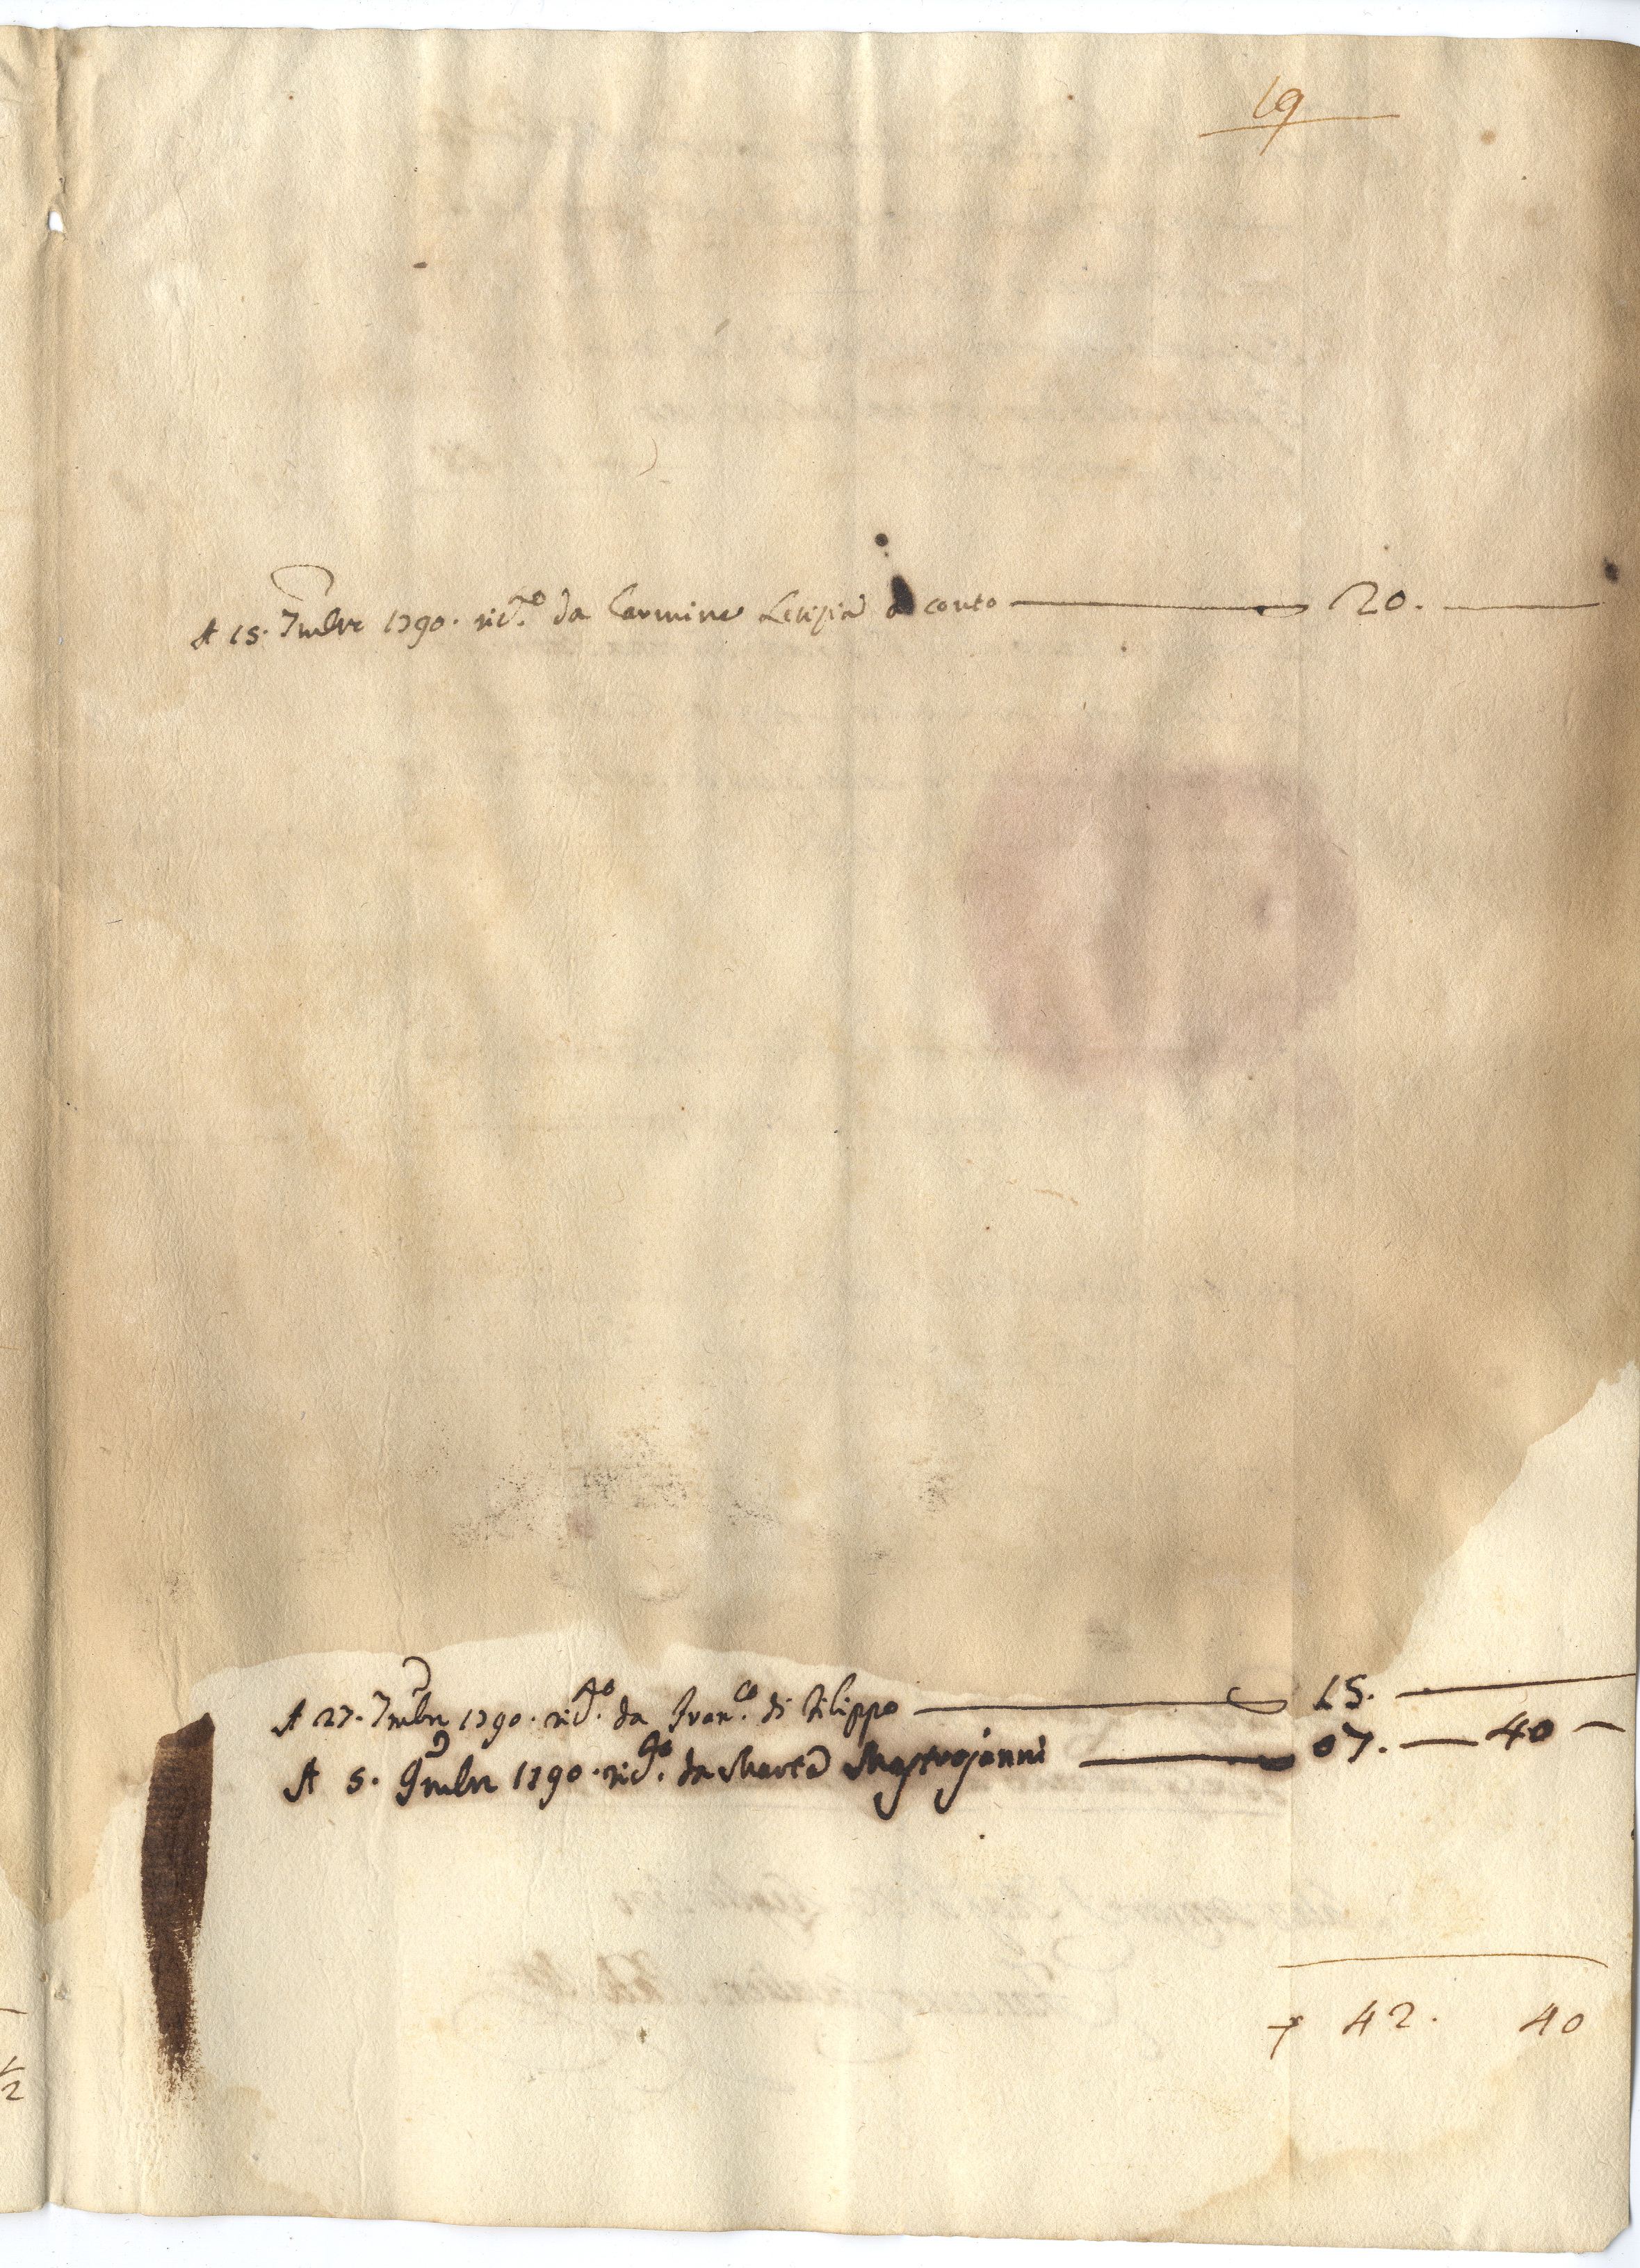 19
A 15. 7mbre 1790. ric.to da Carmine Letizia a conto — 20. —
A 27. 7mbre 1790. ric.to da Fran.co di Filippo — 15. —
A 5. 9mbre 1790. ric.to da Marta Mastrojanni — 07. — 40 —
42. 40
1/2